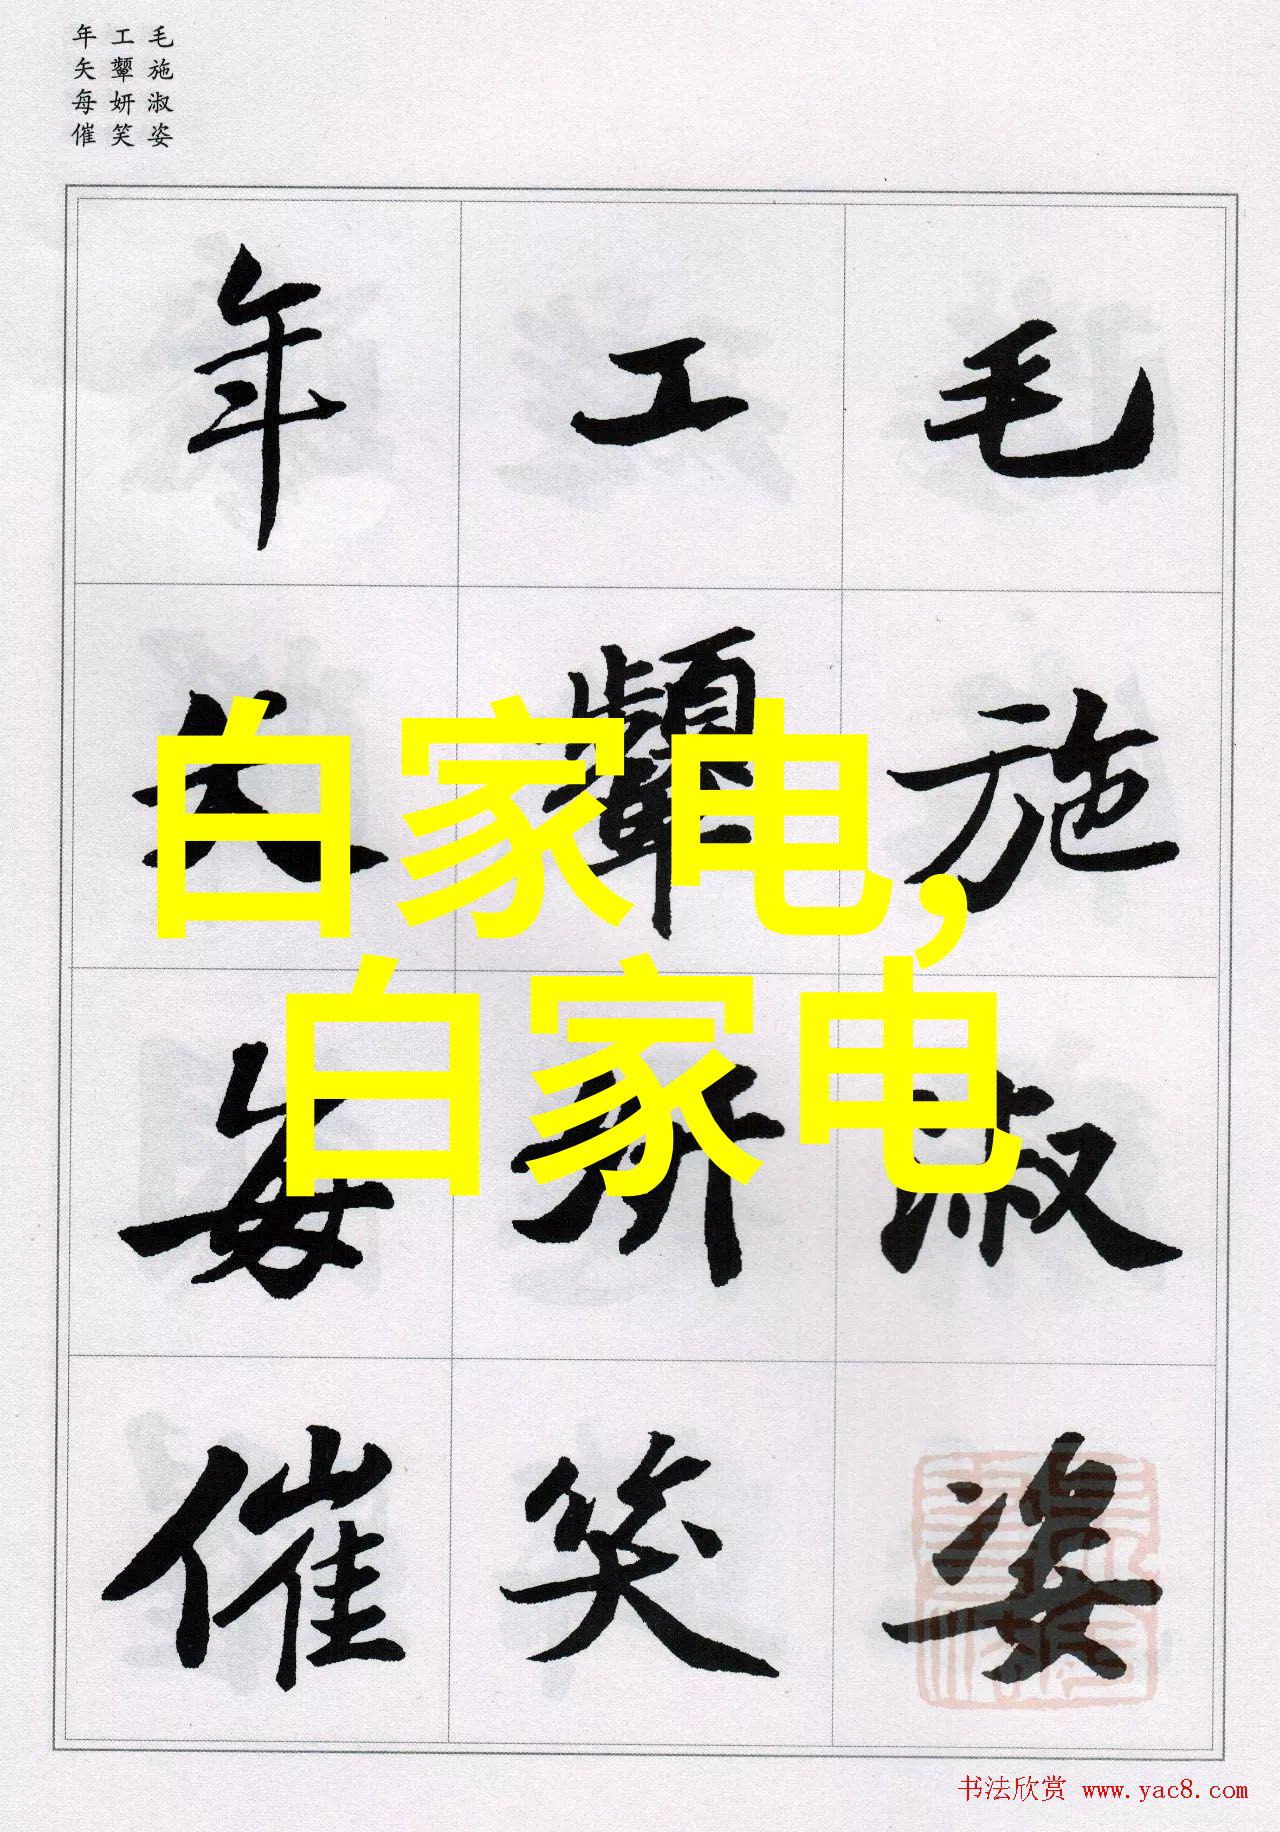 毛施淑姿
工顰妍笑
年矢每催
毛施淑姿
工顰妍笑
年矢每催
白家电,
白家电
书法欣赏 www.yac8.com